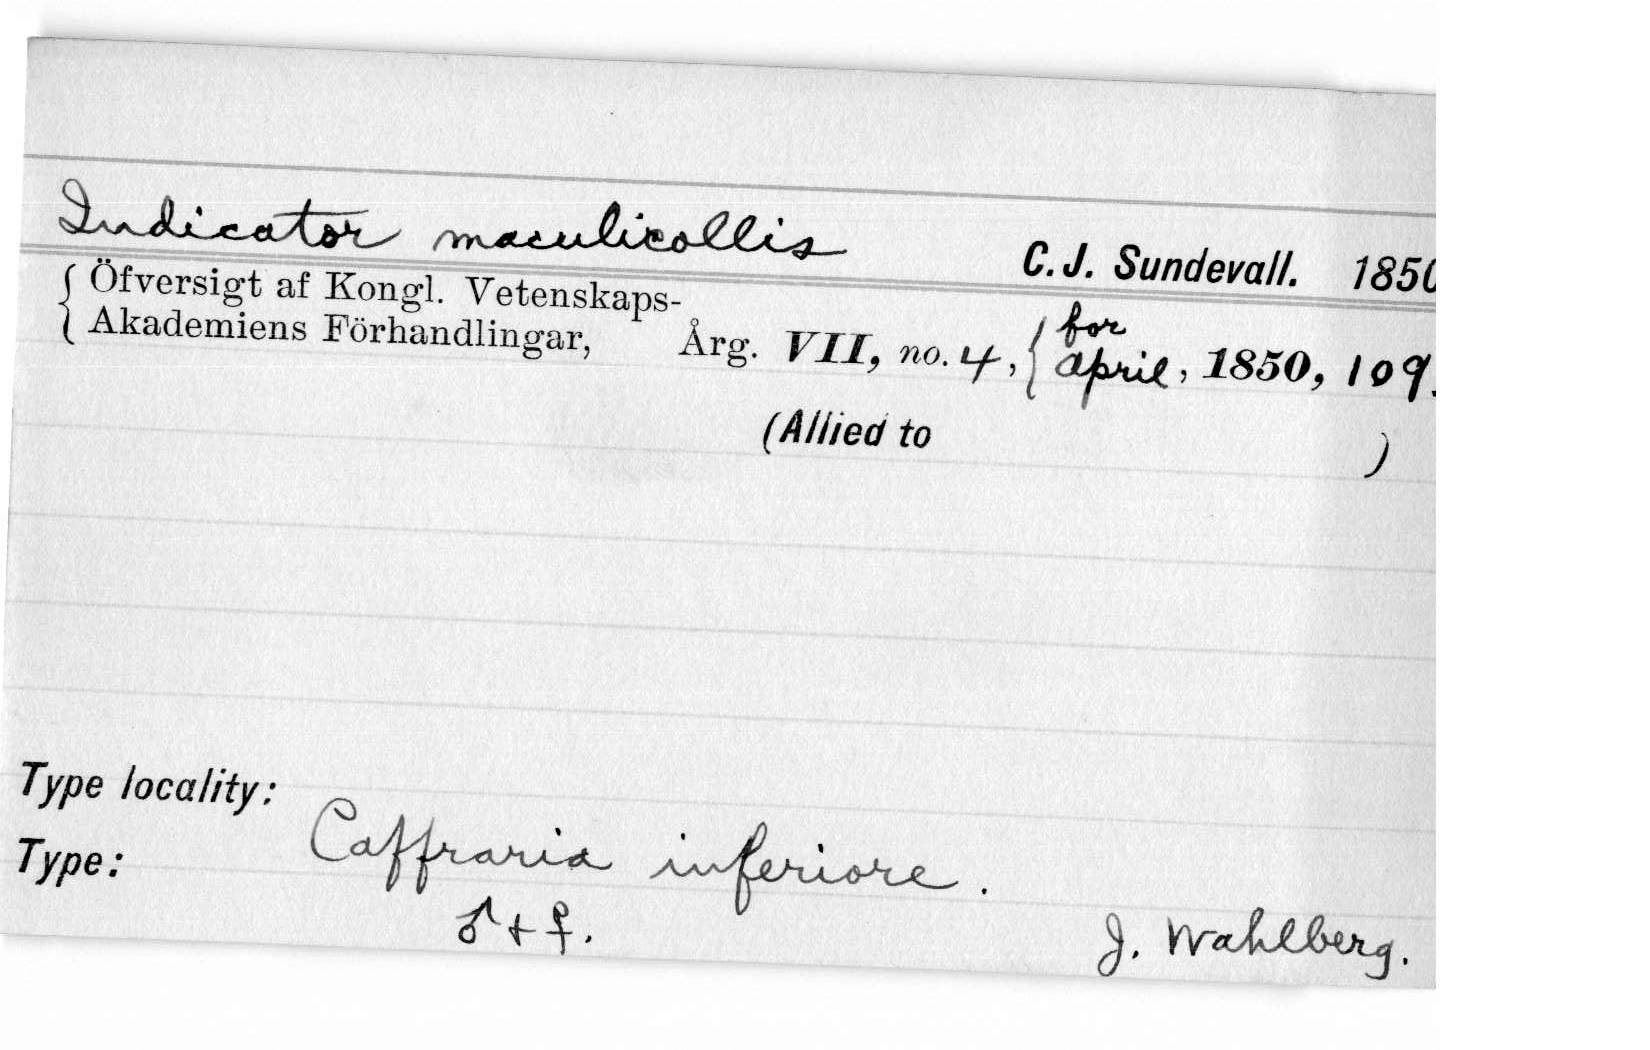 Indicator maculicollis C. J. Sundevall. 1850
{ Öfversigt af Kongl. Vetenskaps-
Akademiens Förhandlingar, Årg. VII, no. 4, { for
april, 1850, 109.
(Allied to )
Type locality:
Caffraria inferiore.
Type:
♂ + ♀. J. Wahlberg.